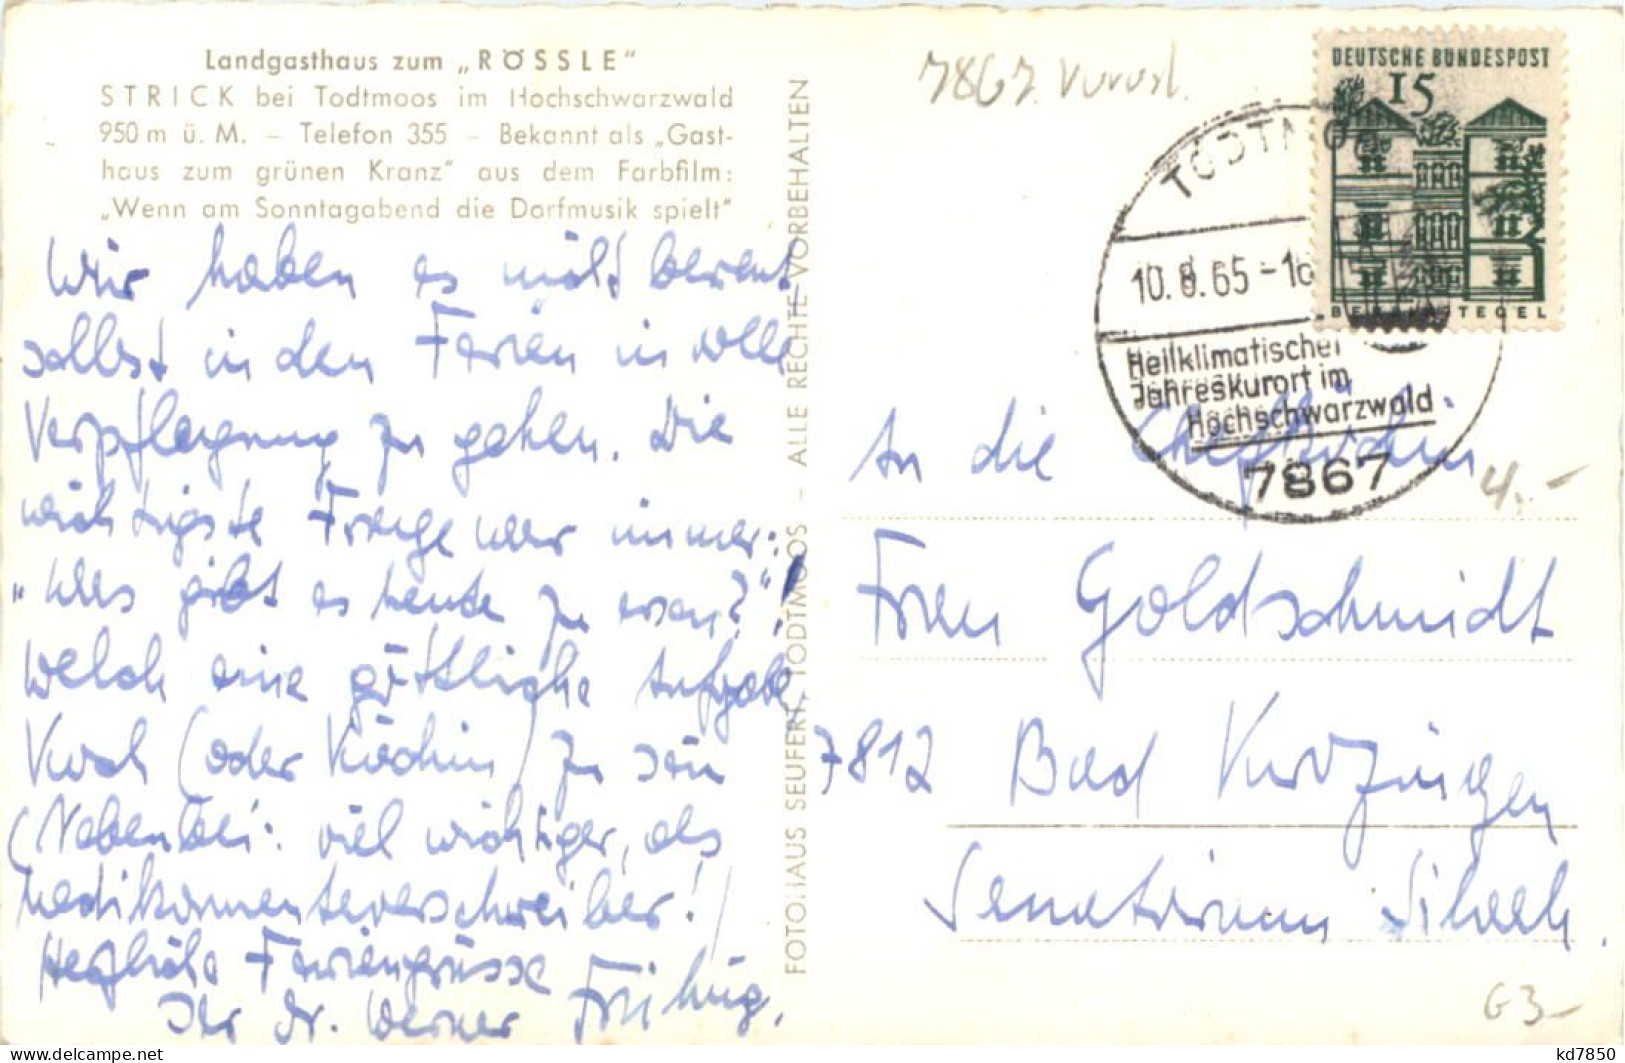 Landgasthaus zum „RÖSSLE"
STRICK bei Todtmoos im Hochschwarzwald
950 m ü. M. – Telefon 355 – Bekannt als „Gast-
haus zum grünen Kranz" aus dem Farbfilm:
„Wenn am Sonntagabend die Dorfmusik spielt"
Wir haben es nicht bereut
selbst in den Ferien in volle
Verpflegung zu gehen. Die
wichtigste Frage war immer:
"Was gibt es heute zu essen?"!
Welch eine göttliche Aufgabe,
Koch (oder Köchin) zu sein
(Nebenbei: viel wichtiger, als
Medikamenteverschreiber!)
Herzliche Feriengrüsse
Ihr Dr. Werner
FOTOHAUS SEUFERT, TODTMOOS – ALLE RECHTE VORBEHALTEN
7867.
DEUTSCHE BUNDESPOST
15
TEGEL
TODTMOOS
10.8.65-
Heilklimatischer
Jahreskurort im
Hochschwarzwald
7867
An die Chefköchin
4.-
Frau Goldschmidt
7812 Bad Krozingen
Sanatorium
G3-
kd7850